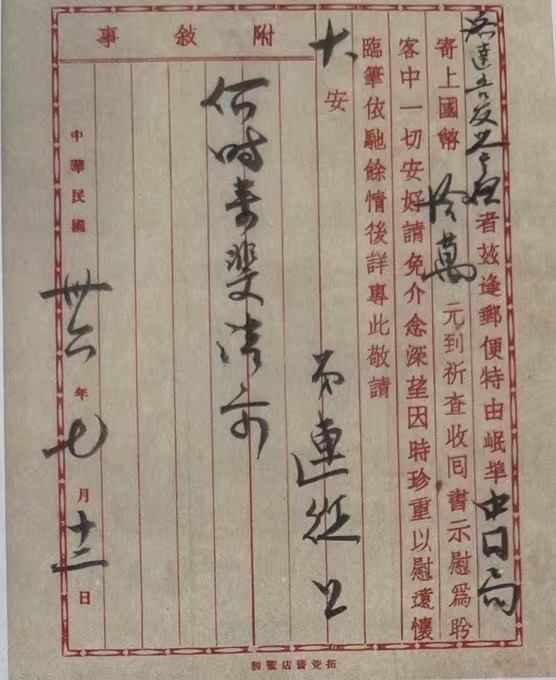 者茲逢郵便特由岷埠中局
寄上國幣拾萬元到祈查收回書示慰為盼
客中一切安好請免介念深望因時珍重以慰遠懷
臨筆依馳餘情後詳專此敬請
大安
連 上
附敘事
何時 請示
中華民國卅六年七月十二日
拓荒書店監製